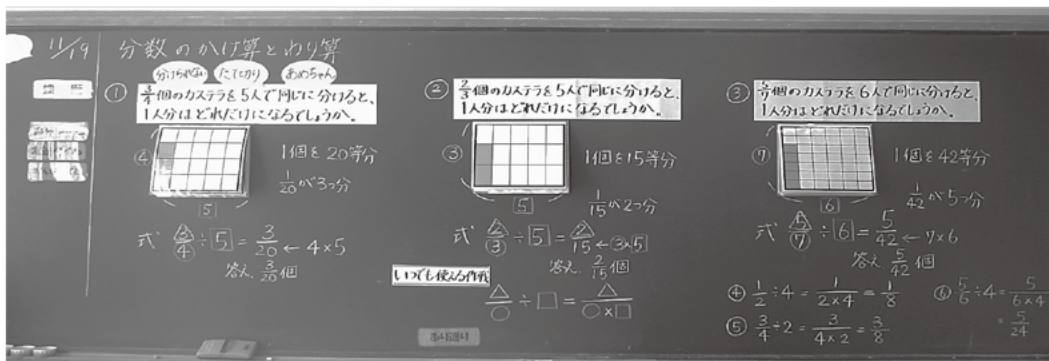 11/19
分数のかけ算とわり算
分けられない たてわり あめちゃん
①
3/4個のカステラを5人で同じに分けると、
1人分はどれだけになるでしょうか。
④
5
1個を20等分
1/20が3つ分
式 3/4÷5=3/20←4×5
答え 3/20個
②
2/3個のカステラを5人で同じに分けると、
1人分はどれだけになるでしょうか。
③
5
1個を15等分
1/15が2つ分
式 2/3÷5=2/15←③×5
答え 2/15個
いつでも使える作戦
△/○÷□=△/○×□
③
5/7個のカステラを6人で同じに分けると、
1人分はどれだけになるでしょうか。
⑦
6
1個を42等分
1/42が5つ分
式 5/7÷6=5/42←7×6
答え 5/42個
④ 1/2÷4=1/2×4=1/8
⑤ 3/4÷2=3/4×2=3/8
⑥ 5/6÷4=5/6×4
=5/24